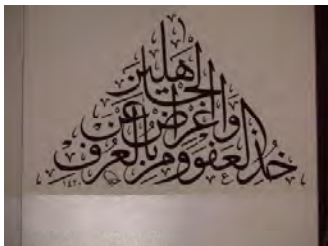 خذ العفو وأمر بالعرف
وأعرض عن
الجاهلين